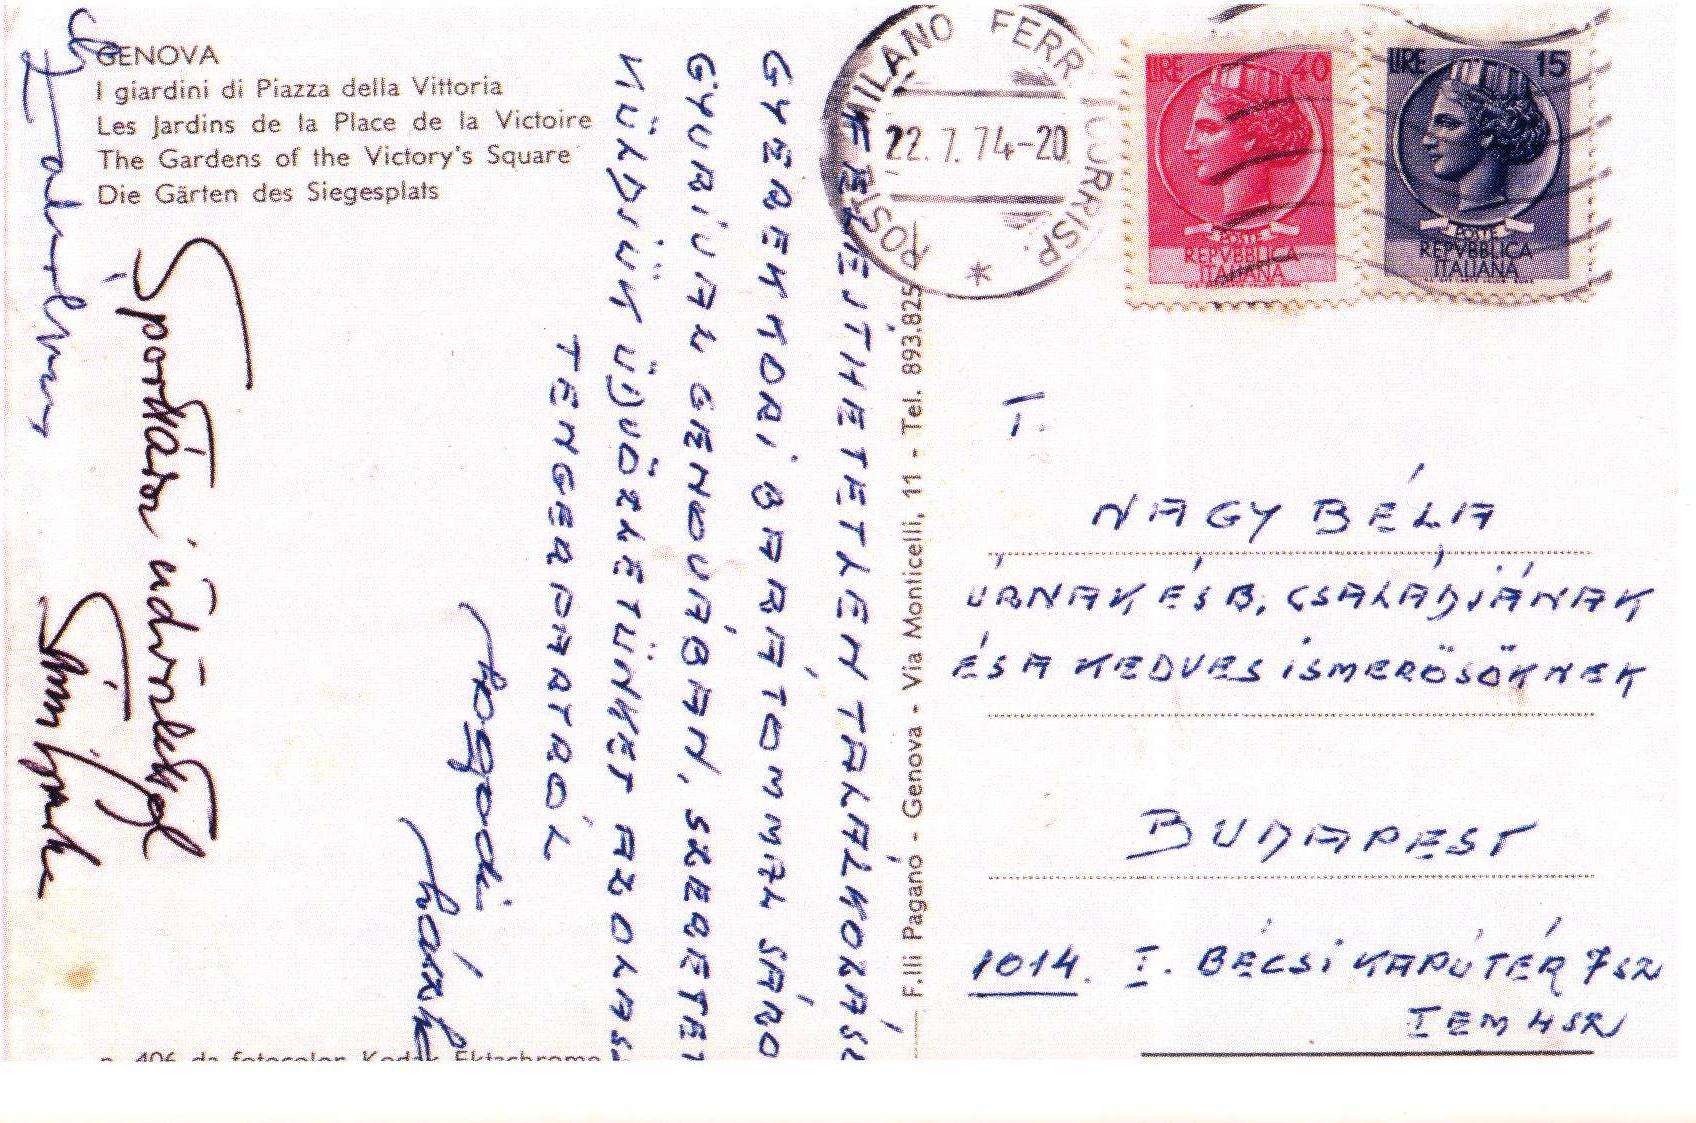 GENOVA
I giardini di Piazza della Vittoria
Les Jardins de la Place de la Victoire
The Gardens of the Victory's Square
Die Gärten des Siegesplats
FELEJTHETETLEN TALÁLKOZÁS
GYEREKKORI BARÁTOMMAL SÁRO
GYURIVAL GENOVÁBAN, SZERETET
KÜLDJÜK ÜDVÖZLETÜNKET AZ OLASZ
TENGERPARTRÓL
Sporttársi üdvözlettel
F.lli Pagano - Genova - Via Monticelli, 11 - Tel. 893.825
MILANO FERR. CORRISP.
POSTE
22.7.74-20
LIRE 40
POSTE
REPVBBLICA
ITALIANA
LIRE 15
POSTE
REPVBBLICA
ITALIANA
T.
NAGY BÉLA
ÚRNAK ÉS B. CSALÁDJÁNAK
ÉS A KEDVES ISMERŐSÖKNEK
BUDAPEST
1014. I. BÉCSI KAPU TÉR 7 SZ
I EM 4 SZ
n. 406 da fotocolor Kodak Ektachrome